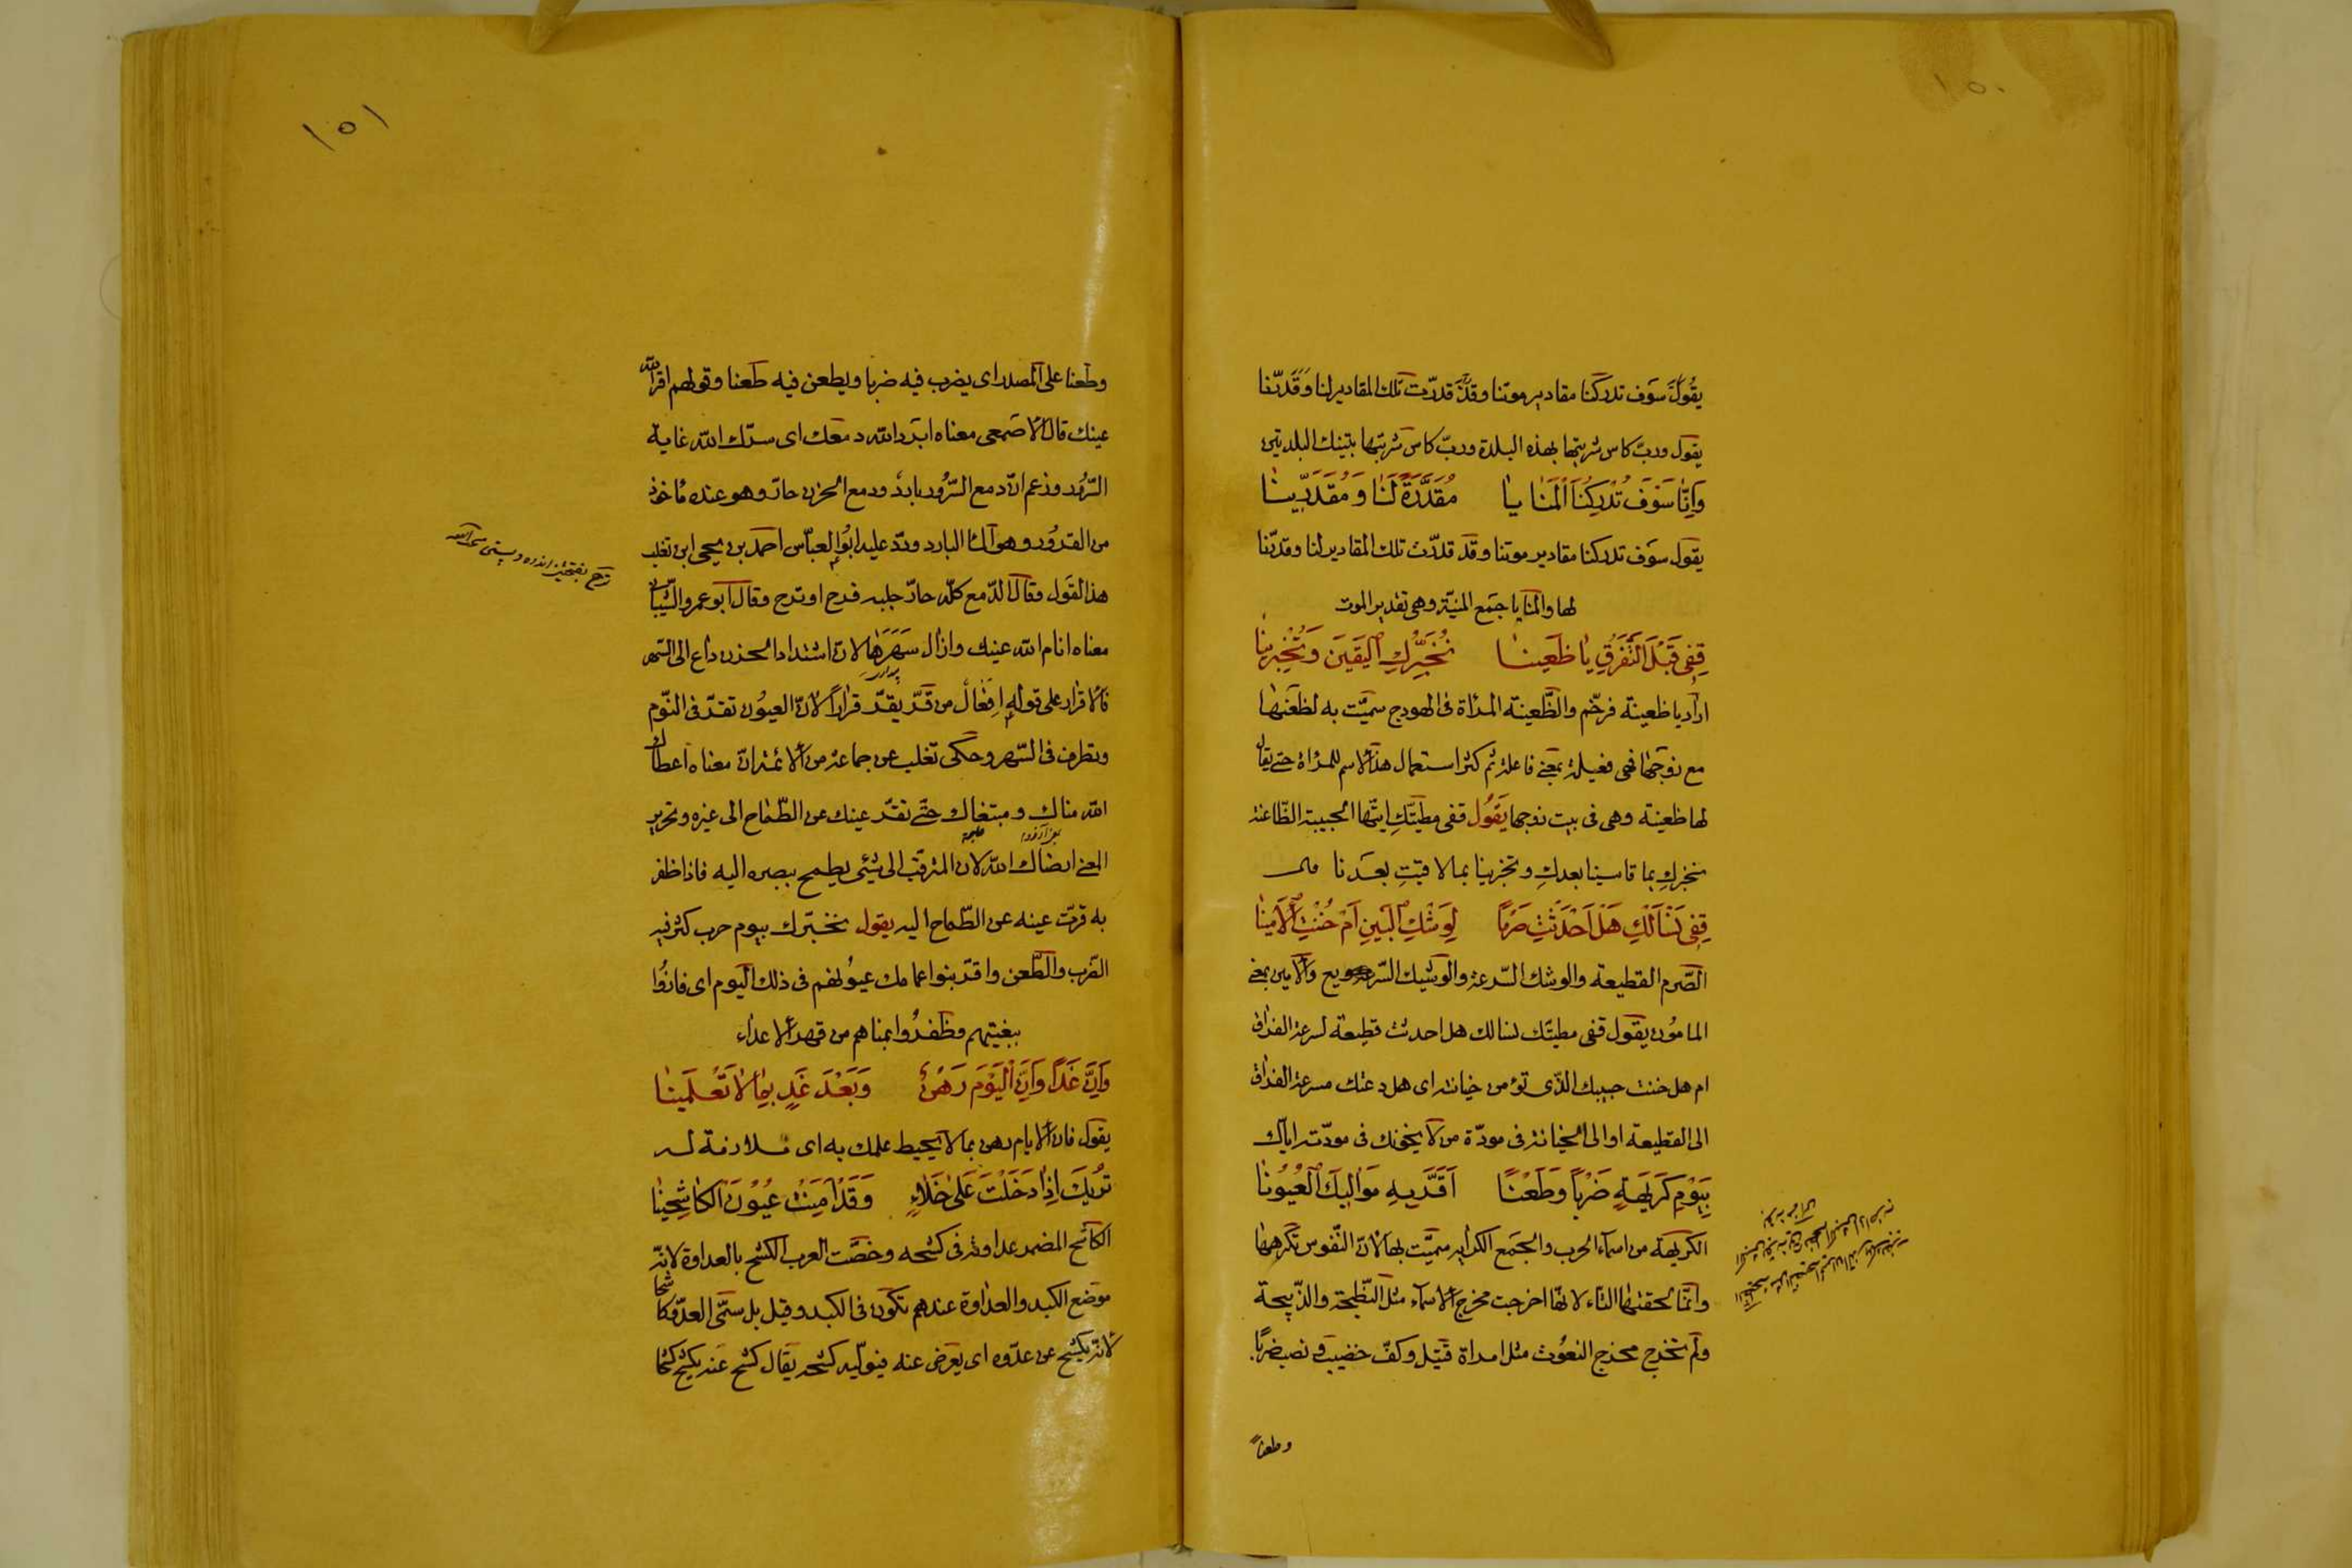 ١٥٠
يقول سوف تدركنا مقادير موتنا وقد قدّرت تلك المقادير لنا وقدّرنا
يقول وربّ كاس شربتها بهذه البلدة وربّ كاس شربتها بتينك البلدتين
وَاِنَّا سَوْفَ تُدْرِكُنَا الْمَنَايا مُقَدَّرَةً لَنَا وَمُقَدَّرِينَا
يقول سوف تدركنا مقادير موتنا وقد قدّرت تلك المقادير لنا وقدّرنا
لها والمنايا جمع المنيّة وهى تقدير الموت
قِفِى قَبْلَ التَّفَرُّقِ يَا ظَعِينَا نُخَبِّرْكِ الْيَقِينَ وَتُخْبِرِينَا
اراد يا ظعينة فرخّم والظّعينة المراة فى الهودج سميّت به لظعنها
مع زوجها فهى فعيلة بمعنى فاعلة ثم كثر استعمال هذا الاسم للمراة حتى يقال
لها ظعينة وهى فى بيت زوجها يقول قفى مطيّتكِ ايّتها الحبيبة الظّاعنة
نخبركِ بما قاسينا بعدكِ وتخبرينا بما لاقيتِ بعدنا
قِفِى نَسْاَلْكِ هَلْ اَحْدَثْتِ صَرْمًا لِوَشْكِ الْبَيْنِ اَمْ خُنْتِ الْاَمِينَا
الصّرم القطيعة والوشك السّرعة والوشيك السّريع والامين بمعنى
المامون يقول قفى مطيّتك نسالك هل احدثت قطيعة لسرعة الفراق
ام هل خنت حبيبك الذّى تؤمن خيانته اى هل دعتك سرعة الفراق
الى القطيعة او الى الخيانة فى مودّة من لا يخونك فى مودّته ايّاك
بِيَوْمِ كَرِيهَةٍ ضَرْبًا وَطَعْنًا اَقَرَّ بِهِ مَوَالِيكِ الْعُيُونَا
الكريهة من اسماء الحرب والجمع الكرايه سميّت بها لانّ النّفوس تكرهها
وانّما لحقتها التاء لانّها اخرجت مخرج الاسماء مثل النّطيحة والذّبيحة
ولم تخرج مخرج النعوت مثل امراة قتيل وكفّ خضيب ونصب ضربًا
وطعنًا
١٥١
وطعنا على المصدر اى يضرب فيه ضربا ويطعن فيه طعنا وقولهم اقر الله
عينك قال الاصمعى معناه ابرد الله دمعك اى سرّك الله غاية
السّرور وزعم انّ دمع السّرور بارد ودمع الحزن حارّ وهو عنده ماخوذ
من القرور وهو الماء البارد وردّ عليه ابو العبّاس احمد بن يحيى ابن ثعلب
هذا القول وقال الدّمع كلّه حارّ جلبه فرح او ترح وقال ابو عمرو الشّيبانى
معناه انام الله عينك وازال سَهَرَهَا لان اشتداد الحزن داع الى السّهر
فالاقرار على قوله اِفعال من قرّ يقرّ قرارًا لانّ العيون تقرّ فى النّوم
وتطرف فى السّهر وحكى ثعلب عن جماعة من الائمة انّ معناه اعطاك
الله مناك ومبتغاك حتّى تقرّ عينك عن الطّماح الى غيره وتحرير
المعنى ارضاك الله لان المترقّب الى شيئى يطمح ببصره اليه فاذا ظفر
به قرّت عينه عن الطّماح اليه يقول نخبّرك بيوم حرب كثر فيه
الضّرب والطّعن واقرّ بنوا اعمامك عيونهم فى ذلك اليوم اى فازوا
ببغيتهم وظفروا بمناهم من قهر الاعداء
وَاِنَّ غَدًا وَاِنَّ الْيَوْمَ رَهْنٌ وَبَعْدَ غَدٍ بِمَا لَا تَعْلَمِينَا
يقول فان الايام رهن بما لا يحيط علمك به اى ملازمة له
تُرِيكَ اِذَا دَخَلْتَ عَلَى خَلَاءٍ وَقَدْ اَمِنَتْ عُيُونَ الْكَاشِحِينَا
الكاشح المضمر عداوته فى كشحه وخصّت العرب الكشح بالعداوة لانّه
موضع الكبد والعداوة عندهم تكون فى الكبد وقيل بل سمّى العدّو كاشحا
لانّه يكشح عن عدّوه اى يعرض عنه فيولّيه كشحه يقال كشح عنه يكشح كشحا